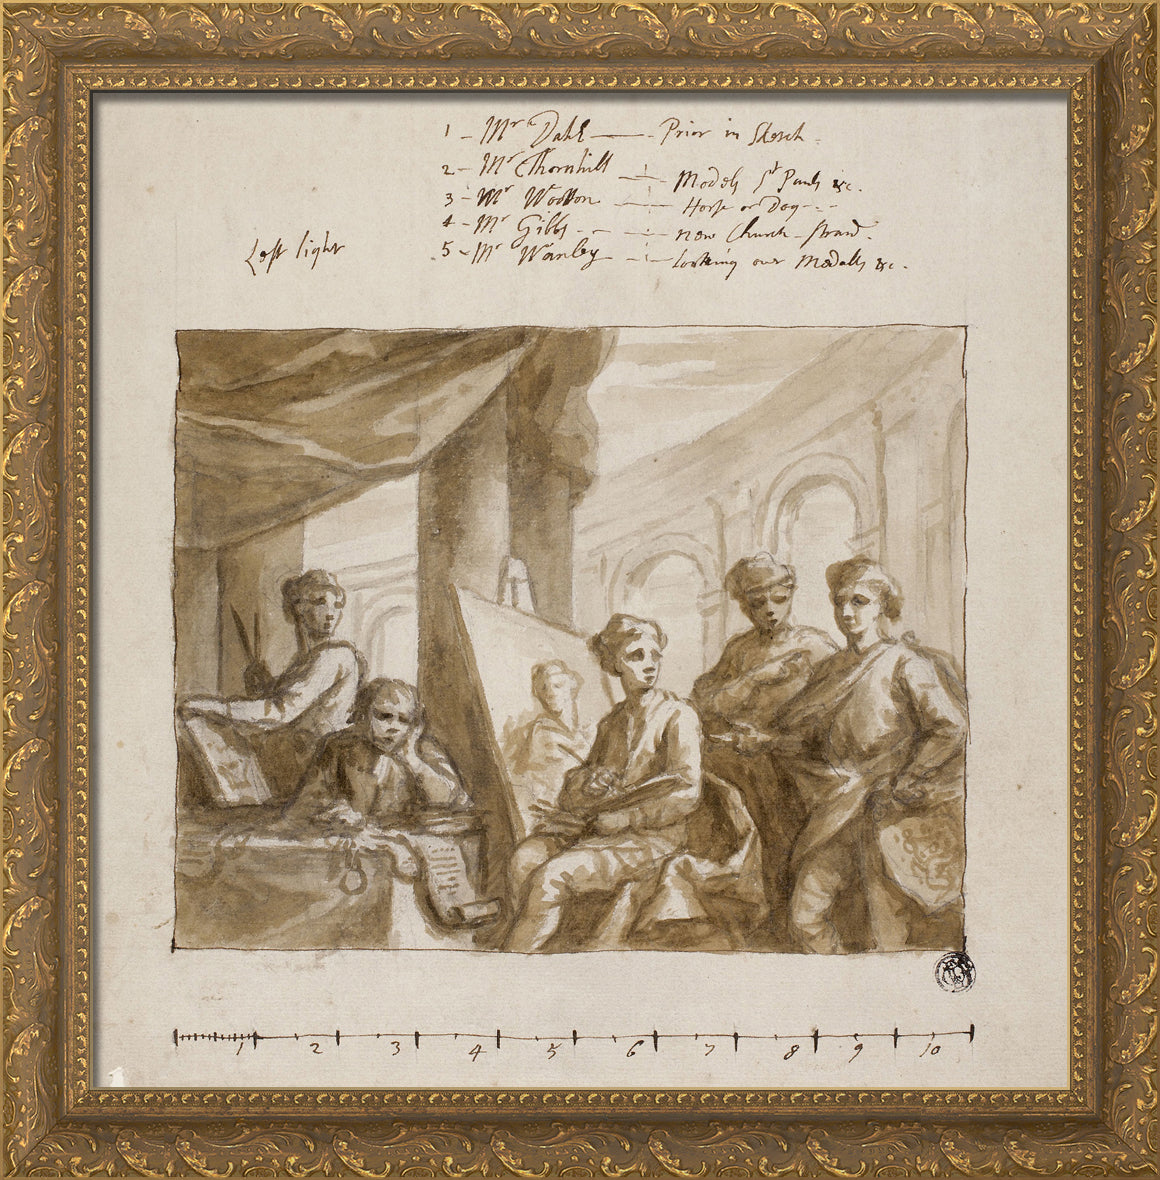 1 - Mr Dahl - Prior in Sketch -
2 - Mr Thornhill - Models St Pauls &c.
3 - Mr Wootton - Horse or Dog - -
4 - Mr Gibbs - - New Church - Strand.
5 - Mr Wanley - looking over Medalls &c.
Left light
1 2 3 4 5 6 7 8 9 10